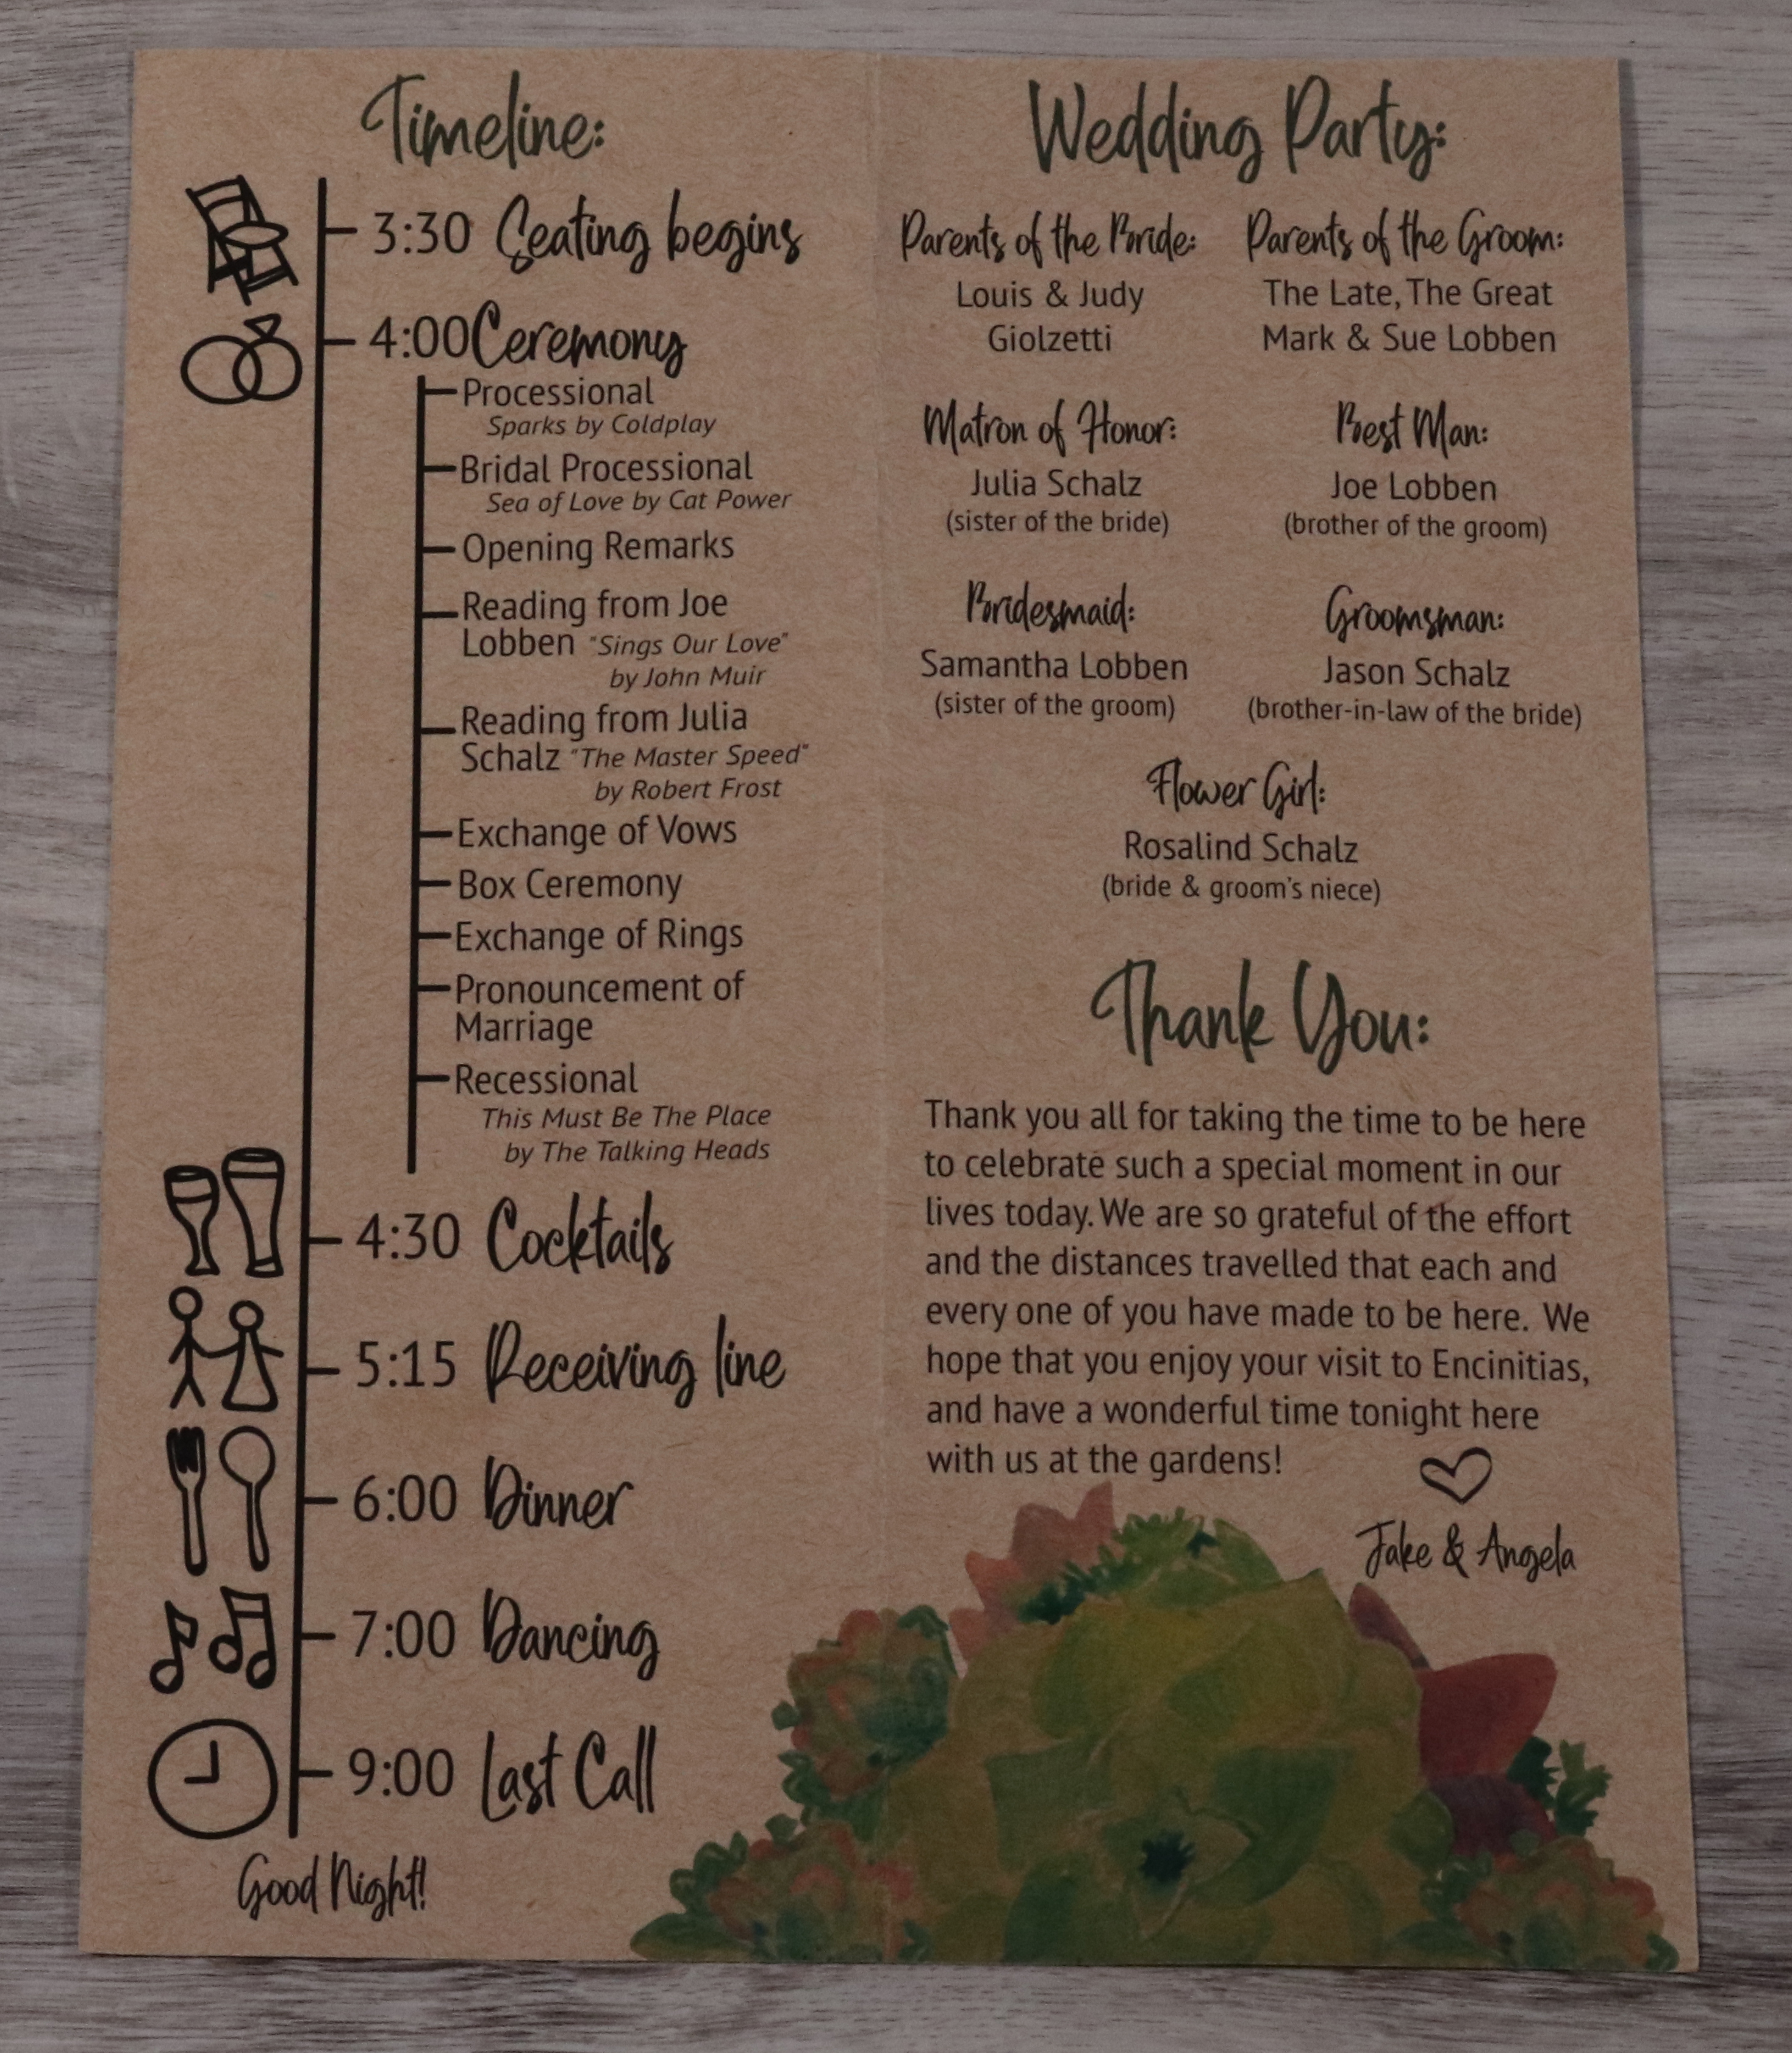 Timeline:
3:30 Seating begins
4:00 Ceremony
Processional
Sparks by Coldplay
Bridal Processional
Sea of Love by Cat Power
Opening Remarks
Reading from Joe
Lobben "Sings Our Love"
by John Muir
Reading from Julia
Schalz "The Master Speed"
by Robert Frost
Exchange of Vows
Box Ceremony
Exchange of Rings
Pronouncement of
Marriage
Recessional
This Must Be The Place
by The Talking Heads
4:30 Cocktails
5:15 Receiving line
6:00 Dinner
7:00 Dancing
9:00 Last Call
Good Night!
Wedding Party:
Parents of the Bride:
Louis & Judy
Giolzetti
Parents of the Groom:
The Late, The Great
Mark & Sue Lobben
Matron of Honor:
Julia Schalz
(sister of the bride)
Best Man:
Joe Lobben
(brother of the groom)
Bridesmaid:
Samantha Lobben
(sister of the groom)
Groomsman:
Jason Schalz
(brother-in-law of the bride)
Flower Girl:
Rosalind Schalz
(bride & groom's niece)
Thank You:
Thank you all for taking the time to be here
to celebrate such a special moment in our
lives today. We are so grateful of the effort
and the distances travelled that each and
every one of you have made to be here. We
hope that you enjoy your visit to Encinitias,
and have a wonderful time tonight here
with us at the gardens!
Jake & Angela